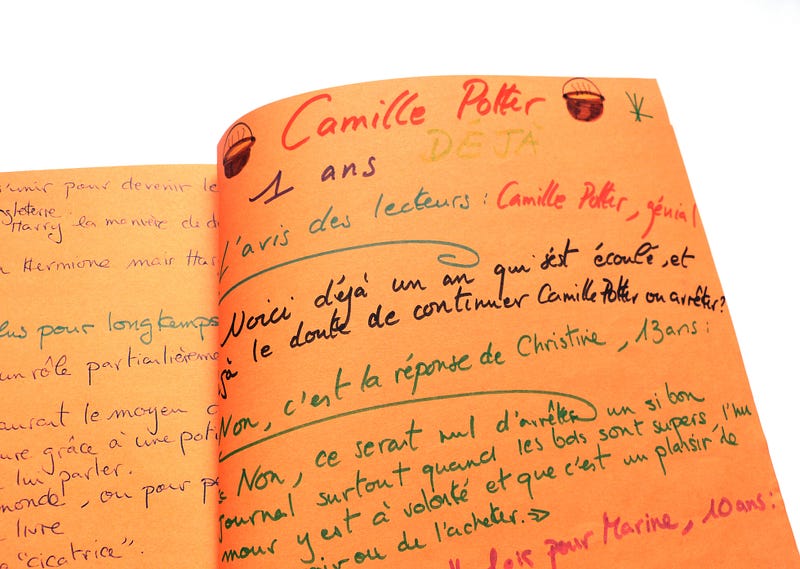 s'unir pour devenir le
gleterre.
Harry la manière de d
n Hermione mais Har
lus pour longtemps
un rôle particulièreme
aurant le moyen
ure grâce à une poti
lui parler.
monde, ou pour p
livre
a "cicatrice".
Camille Potter
DÉJÀ
1 ans
L'avis des lecteurs : Camille Potter, génial
Voici déjà un an qui s'est écoulé, et
jà le doute de continuer Camille Potter ou arrêter?
Non, c'est la réponse de Christine, 13 ans :
« Non, ce serait nul d'arrêter un si bon
journal surtout quand les bds sont supers, l'hu
mour y est à volonté et que c'est un plaisir de
ir ou de l'acheter. »
fois pour Marine, 10 ans :